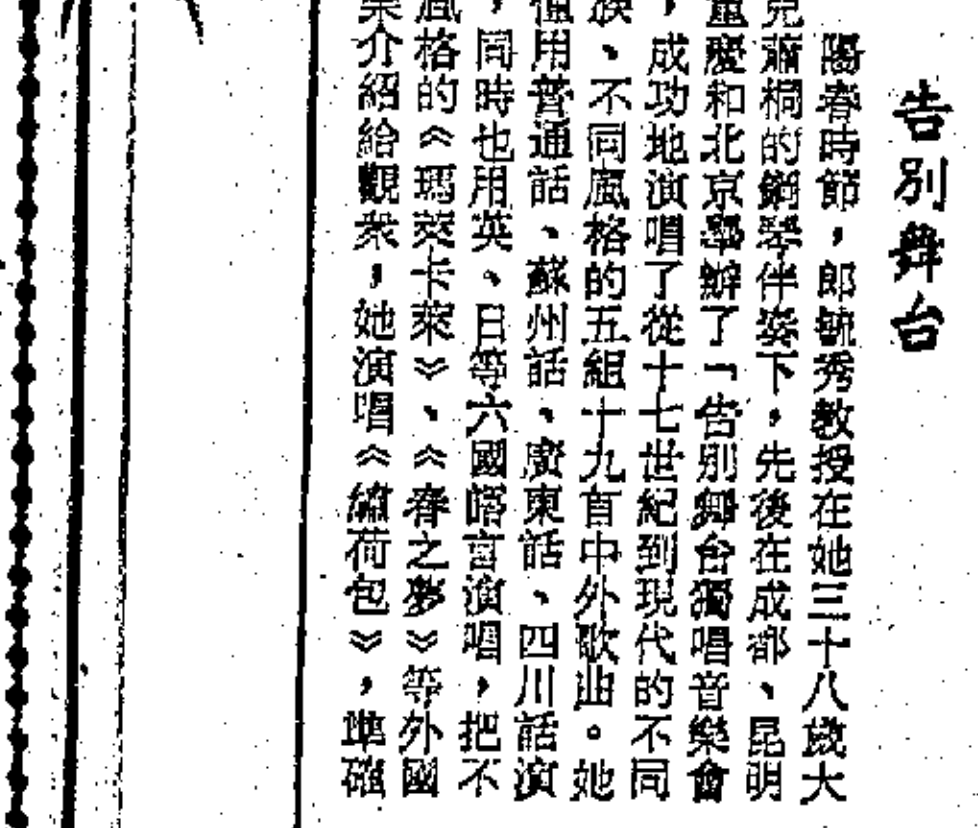 告別舞台
陽春時節，郎毓秀教授在她三十八歲大
兒蕭桐的鋼琴伴奏下，先後在成都、昆明
重慶和北京舉辦了「告別舞台獨唱音樂會
，成功地演唱了從十七世紀到現代的不同
族、不同風格的五組十九首中外歌曲。她
僅用普通話、蘇州話、廣東話、四川話演
，同時也用英、日等六國語言演唱，把不
風格的《瑪萊卡萊》、《春之夢》等外國
介紹給觀衆，她演唱《繡荷包》，準確